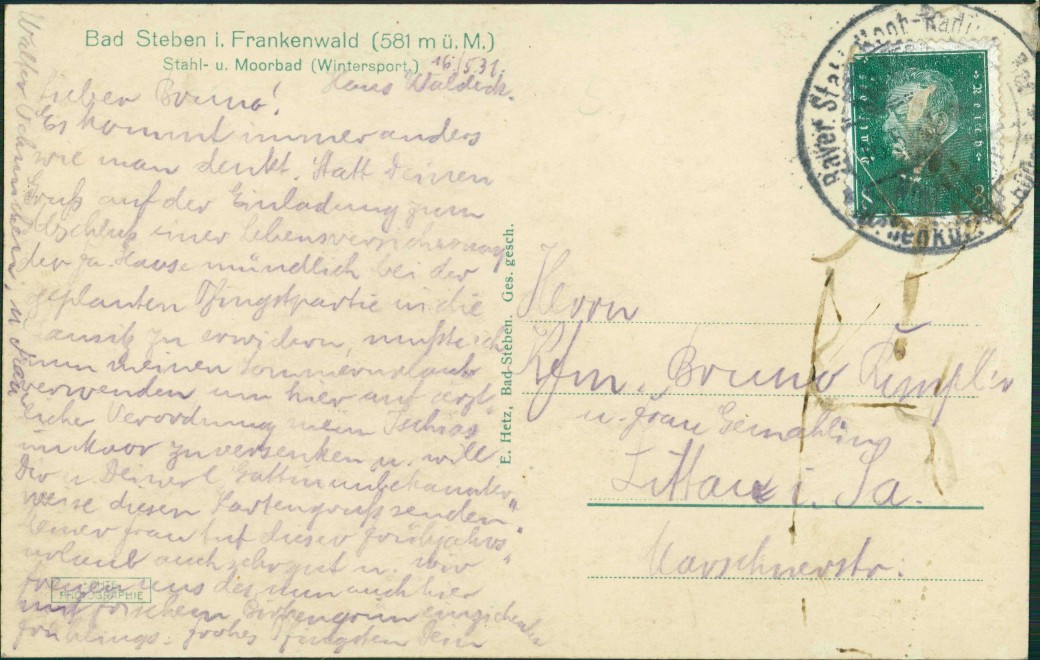 Bad Steben i. Frankenwald (581 m ü. M.)
Stahl- u. Moorbad (Wintersport.)
16/5 31.
Haus Waldeck.
Lieber Bruno!
Es kommt immer anders
wie man denkt. Statt Deinen
Gruß auf der Einladung zum
Abschluß einer Lebensversicherung
der Fa. Hause mündlich bei der
geplanten Pfingstpartie in die
zu erwidern, mußte ich
nun meinen Sommerurlaub
verwenden um hier auf ärzt"
licher Verordnung mein Ischias
im Moor zu versenken u. will
Dir u. Deiner l. Gattin unbekannter"
weise diesen Kartengruß senden.
Meiner Frau tut dieser Frühjahrs"
urlaub auch sehr gut u. wir
freuen uns des nun auch hier
mit frischem Birkengrün einziehenden
Frühlings. Frohes Pfingsten Dein
Walter u. Frau
E. Hetz, Bad-Steben. Ges. gesch.
ECHTE
PHOTOGRAPHIE
Bayer. Staat
Radi
Deutsches Reich
8
Herrn
Kfm. Bruno Rümpler
u. Frau Gemahling
Zittau i. Sa.
Marschnerstr.